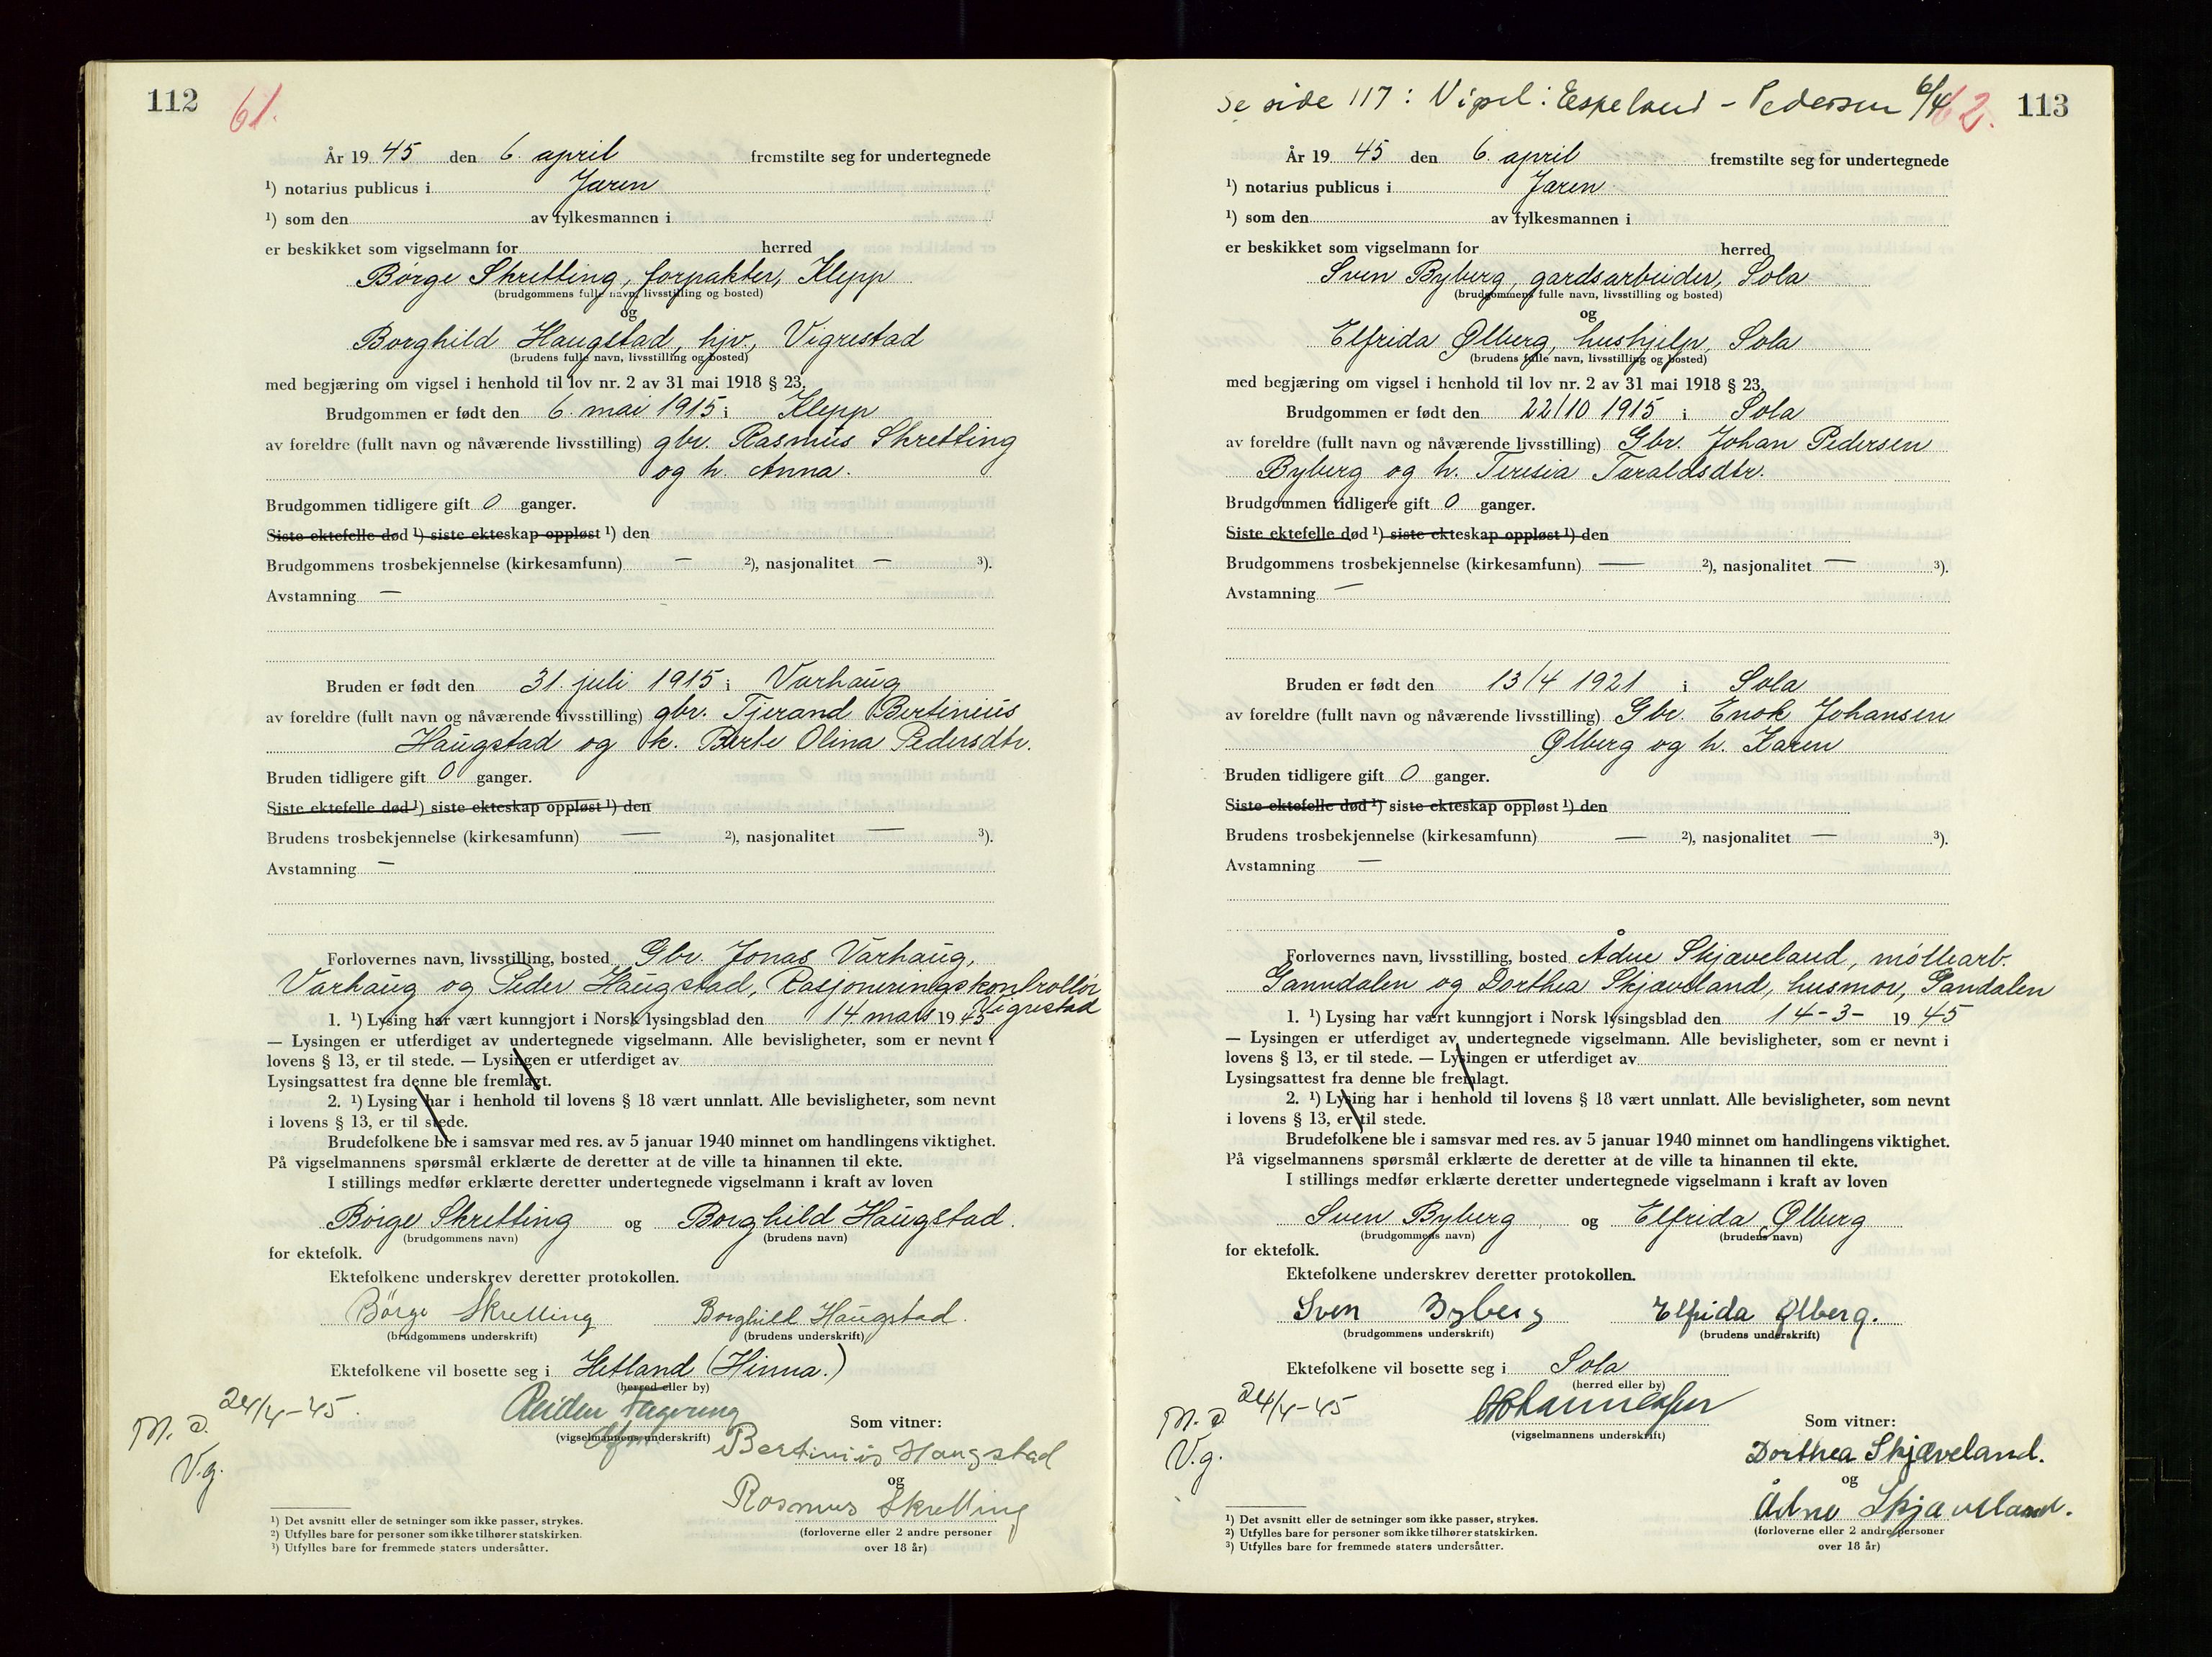 112 61.
År 19 45 den 6. april fremstilte seg for undertegnede
¹) notarius publicus i Jæren
¹) som den av fylkesmannen i
er beskikket som vigselmann for herred
Børge Skretting, forpakter, Klepp
(brudgommens fulle navn, livsstilling og bosted)
og
Borghild Haugstad, hjv., Vigrestad
(brudens fulle navn, livsstilling og bosted)
med begjæring om vigsel i henhold til lov nr. 2 av 31 mai 1918 § 23.
Brudgommen er født den 6. mai 1915 i Klepp
av foreldre (fullt navn og nåværende livsstilling) gbr. Rasmus Skretting
og h. Anna.
Brudgommen tidligere gift 0 ganger.
Siste ektefelle død ¹) siste ekteskap oppløst ¹) den
Brudgommens trosbekjennelse (kirkesamfunn) — ²), nasjonalitet — ³).
Avstamning —
Bruden er født den 31. juli 1915 i Varhaug
av foreldre (fullt navn og nåværende livsstilling) gbr. Tjerand Bertinius
Haugstad og h. Berte Olina Pedersdtr.
Bruden tidligere gift 0 ganger.
Siste ektefelle død ¹) siste ekteskap oppløst ¹) den
Brudens trosbekjennelse (kirkesamfunn) — ²), nasjonalitet — ³).
Avstamning —
Forlovernes navn, livsstilling, bosted Gbr. Jonas Varhaug,
Varhaug og Peder Haugstad, Rasjoneringskontrollør
Vigrestad
1. ¹) Lysing har vært kunngjort i Norsk lysingsblad den 14 mars 19 45
— Lysingen er utferdiget av undertegnede vigselmann. Alle bevisligheter, som er nevnt i
lovens § 13, er til stede. — Lysingen er utferdiget av
Lysingsattest fra denne ble fremlagt.
2. ¹) Lysing har i henhold til lovens § 18 vært unnlatt. Alle bevisligheter, som nevnt
i lovens § 13, er til stede.
Brudefolkene ble i samsvar med res. av 5 januar 1940 minnet om handlingens viktighet.
På vigselmannens spørsmål erklærte de deretter at de ville ta hinannen til ekte.
I stillings medfør erklærte deretter undertegnede vigselmann i kraft av loven
Børge Skretting og Borghild Haugstad.
(brudgommens navn) (brudens navn)
for ektefolk.
Ektefolkene underskrev deretter protokollen.
Börge Skretting Borghild Haugstad.
(brudgommens underskrift) (brudens underskrift)
Ektefolkene vil bosette seg i Hetland (Hinna.)
(herred eller by)
24/4-45.
M. d.
V.g.
Som vitner:
(vigselmannens underskrift)
Bertinius Haugstad
og
Rasmus Skretting
(forloverne eller 2 andre personer
over 18 år)
¹) Det avsnitt eller de setninger som ikke passer, strykes.
²) Utfylles bare for personer som ikke tilhører statskirken.
³) Utfylles bare for fremmede staters undersåtter.
Se side 117: Vigsel: Eskeland - Pedersen 6/4 62. 113
År 19 45 den 6. april fremstilte seg for undertegnede
¹) notarius publicus i Jæren
¹) som den av fylkesmannen i
er beskikket som vigselmann for herred
Sven Byberg, gardsarbeider, Sola
(brudgommens fulle navn, livsstilling og bosted)
og
Elfrida Ølberg, hushjelp, Sola
(brudens fulle navn, livsstilling og bosted)
med begjæring om vigsel i henhold til lov nr. 2 av 31 mai 1918 § 23.
Brudgommen er født den 22/10 1915 i Sola
av foreldre (fullt navn og nåværende livsstilling) Gbr. Johan Pedersen
Byberg og h. Teresia Taraldsdtr.
Brudgommen tidligere gift 0 ganger.
Siste ektefelle død ¹) siste ekteskap oppløst ¹) den
Brudgommens trosbekjennelse (kirkesamfunn) — ²), nasjonalitet — ³).
Avstamning —
Bruden er født den 13/4 1921 i Sola
av foreldre (fullt navn og nåværende livsstilling) Gbr. Enok Johansen
Ølberg og h. Karen
Bruden tidligere gift 0 ganger.
Siste ektefelle død ¹) siste ekteskap oppløst ¹) den
Brudens trosbekjennelse (kirkesamfunn) — ²), nasjonalitet — ³).
Avstamning —
Forlovernes navn, livsstilling, bosted Ådne Skjæveland, møllearb.
Ganndalen og Dorthea Skjæveland, husmor, Gandalen
1. ¹) Lysing har vært kunngjort i Norsk lysingsblad den 14-3- 19 45
— Lysingen er utferdiget av undertegnede vigselmann. Alle bevisligheter, som er nevnt i
lovens § 13, er til stede. — Lysingen er utferdiget av
Lysingsattest fra denne ble fremlagt.
2. ¹) Lysing har i henhold til lovens § 18 vært unnlatt. Alle bevisligheter, som nevnt
i lovens § 13, er til stede.
Brudefolkene ble i samsvar med res. av 5 januar 1940 minnet om handlingens viktighet.
På vigselmannens spørsmål erklærte de deretter at de ville ta hinannen til ekte.
I stillings medfør erklærte deretter undertegnede vigselmann i kraft av loven
Sven Byberg og Elfrida Ølberg
(brudgommens navn) (brudens navn)
for ektefolk.
Ektefolkene underskrev deretter protokollen.
Sven Byberg Elfrida Ølberg.
(brudgommens underskrift) (brudens underskrift)
Ektefolkene vil bosette seg i Sola
(herred eller by)
24/4-45
M. d.
V.g.
Som vitner:
(vigselmannens underskrift)
Dorthea Skjæveland.
og
Ådne Skjæveland.
(forloverne eller 2 andre personer
over 18 år)
¹) Det avsnitt eller de setninger som ikke passer, strykes.
²) Utfylles bare for personer som ikke tilhører statskirken.
³) Utfylles bare for fremmede staters undersåtter.